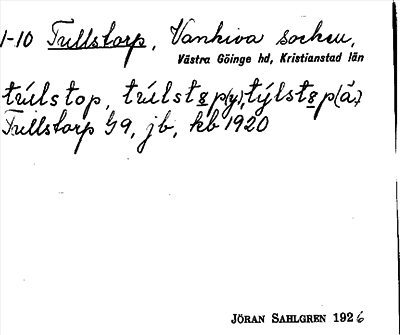 1-10 Trullstorp, Vankiva socken,
Västra Göinge hd, Kristianstad län
trúlstop, trúlstꝸp(y), týlstꝸp(ä.)
Trullstorp G9, jb, kb 1920
JÖRAN SAHLGREN 1926